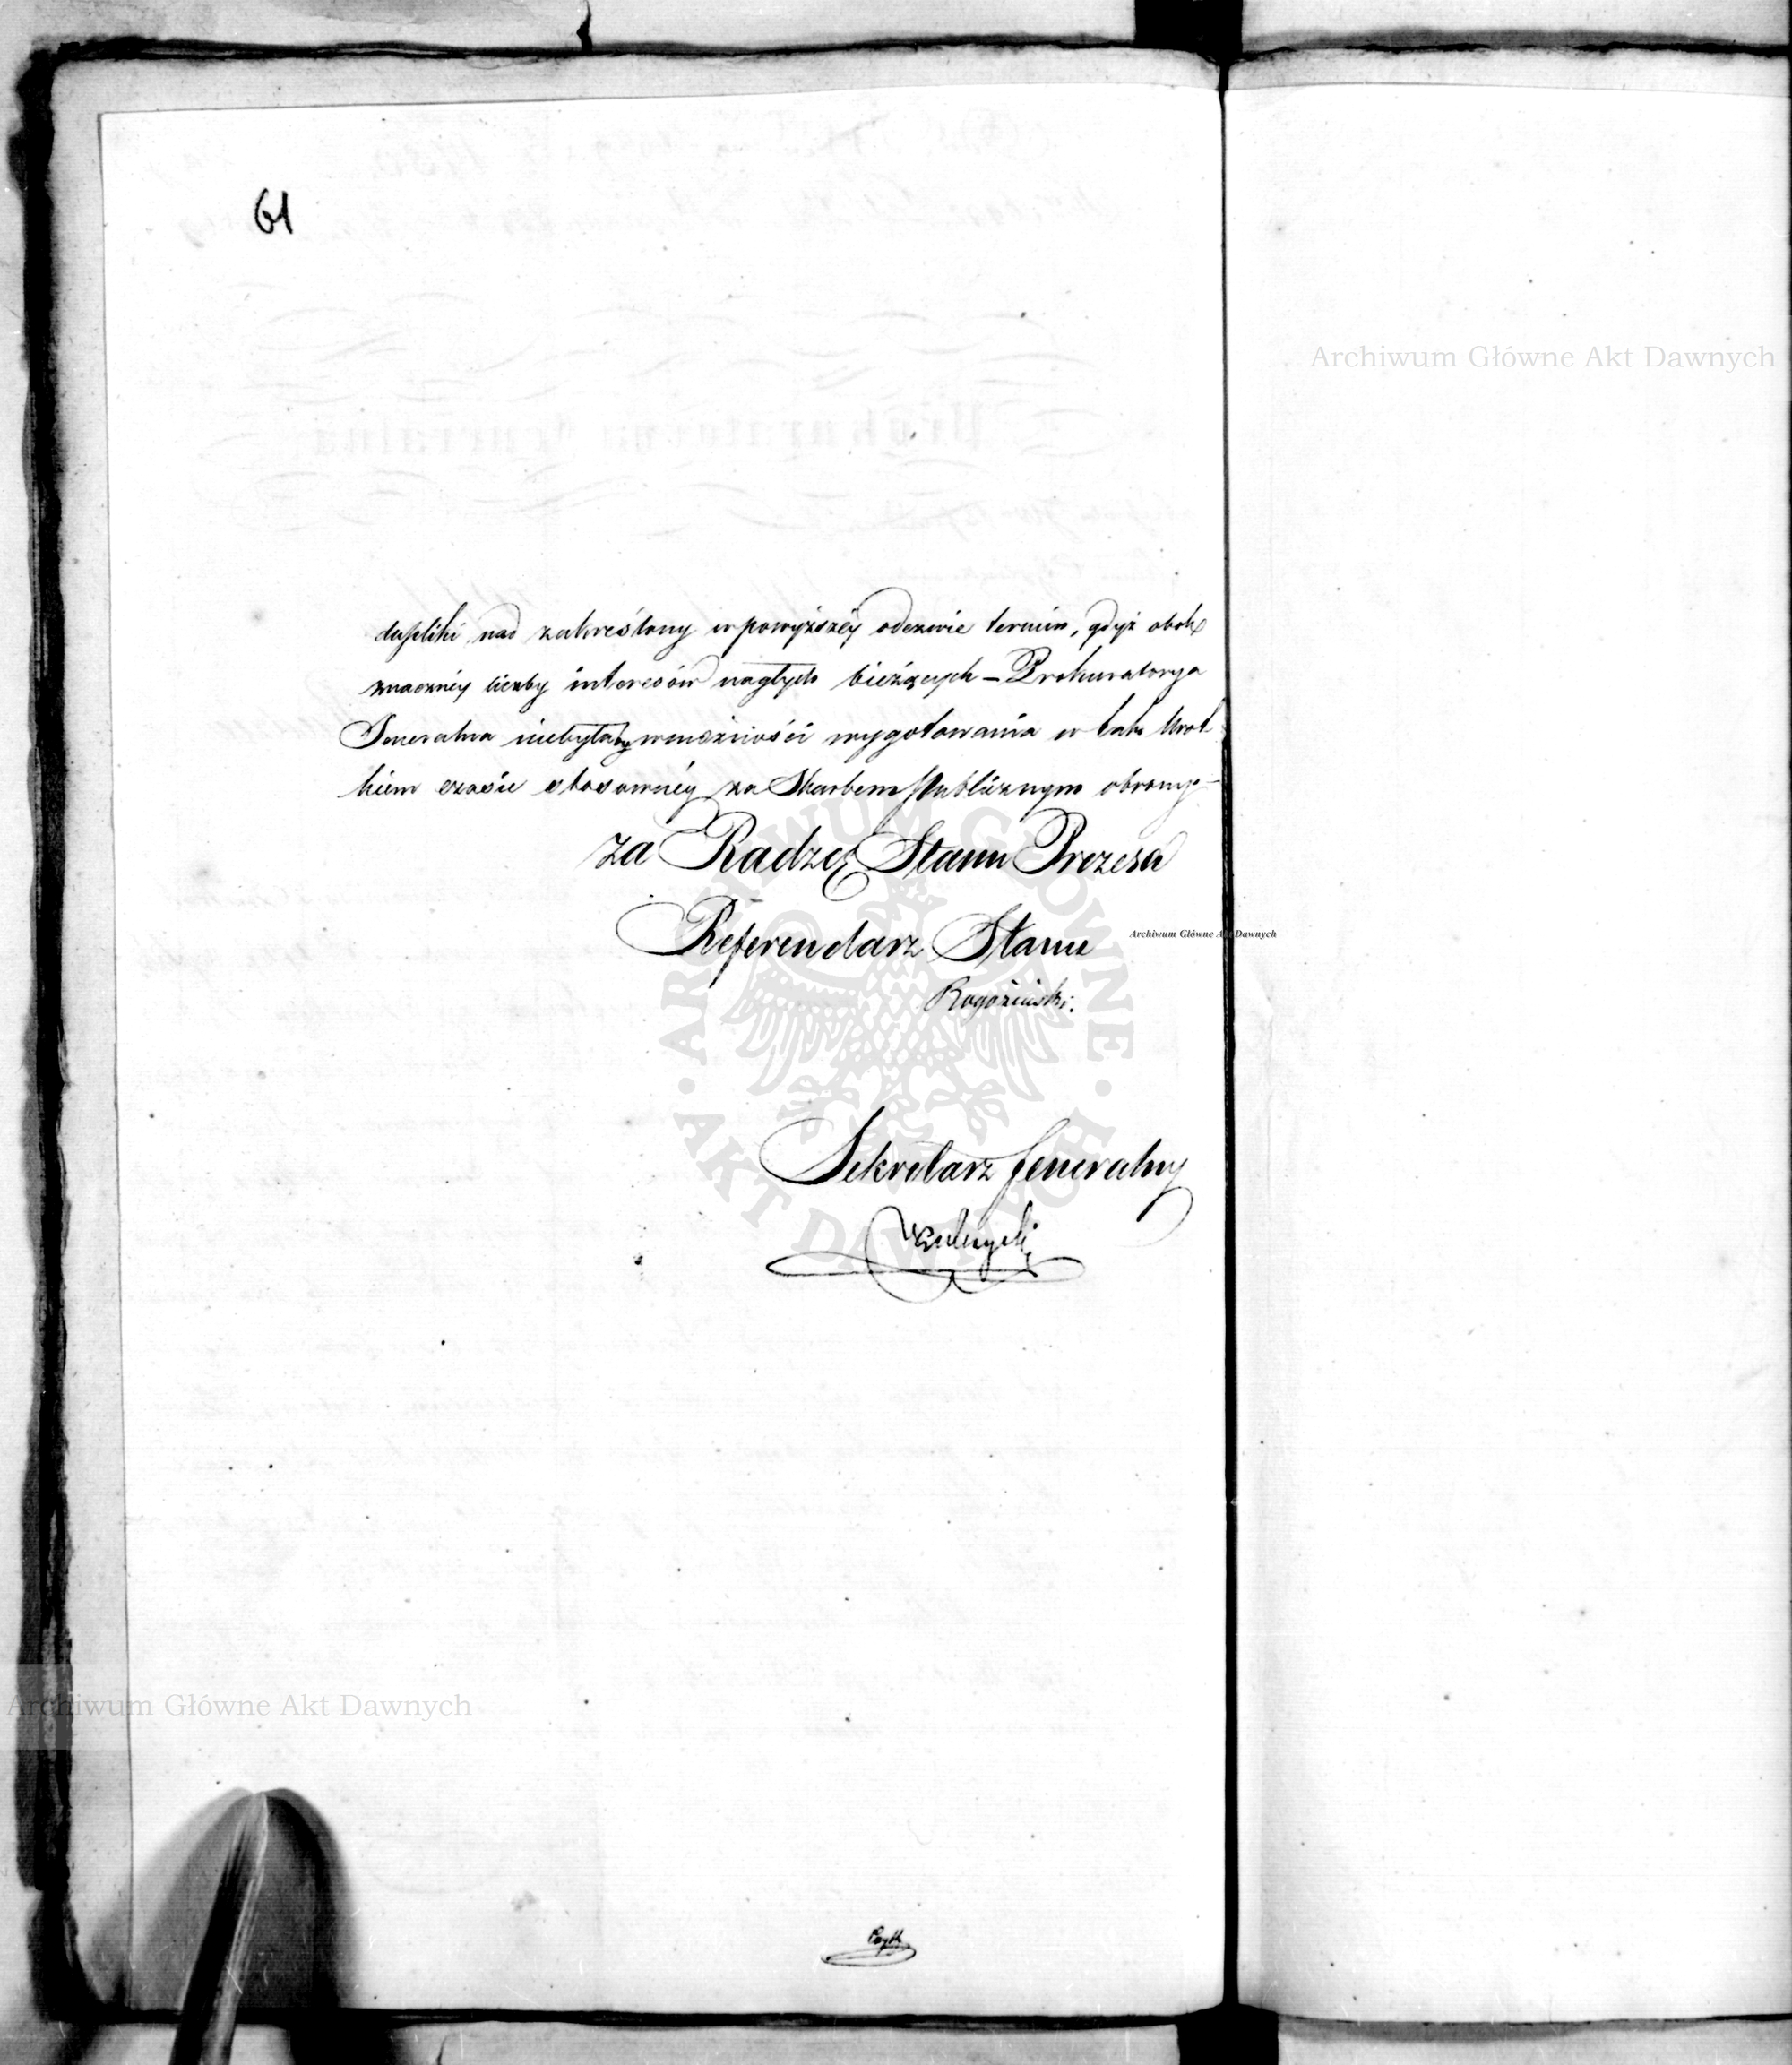 61
Archiwum Główne Akt Dawnych
dupliki nad zakreślony w powyższéy odezwie termin, gdyż obok
znacznéy liczby interesów nagłych bieżących – Prokuratorya
Jeneralna niebyłaby w możności wygotowania w tak krót
kiem czasie stosownéy za Skarbem Publicznym obrony.
za Radzcę Stanu Prezesa
Referendarz Stanu
Archiwum Główne Akt Dawnych
Rogoziński.
Sekretarz Jeneralny
ARCHIWUM GŁÓWNE AKT DAWNYCH
Archiwum Główne Akt Dawnych